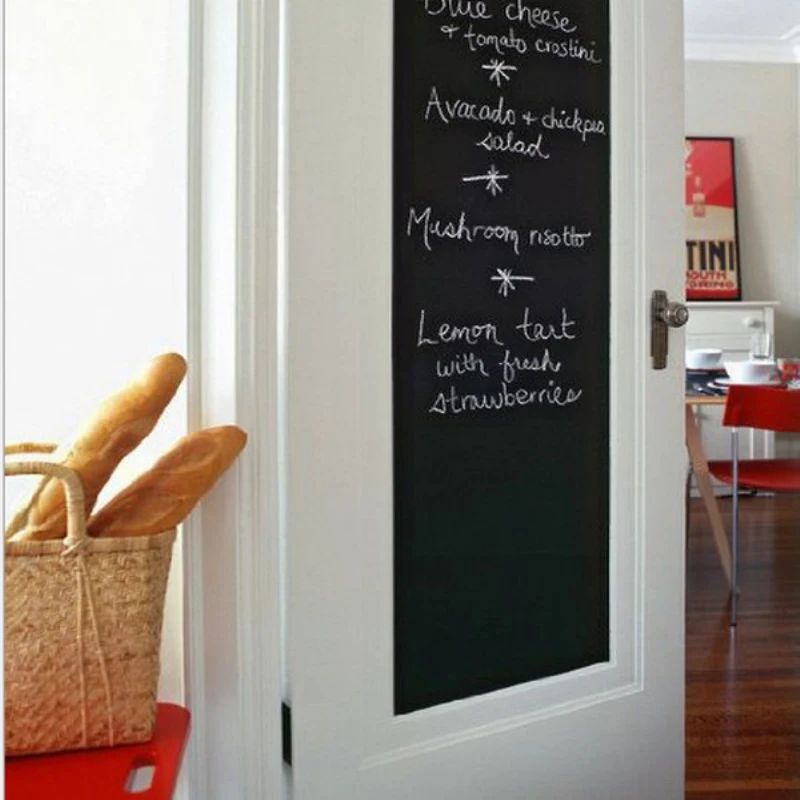 Blue cheese
+ tomato crostini
Avacado + chickpea
salad
Mushroom risotto
Lemon tart
with fresh
strawberries
TINI
OUTH
TORINO